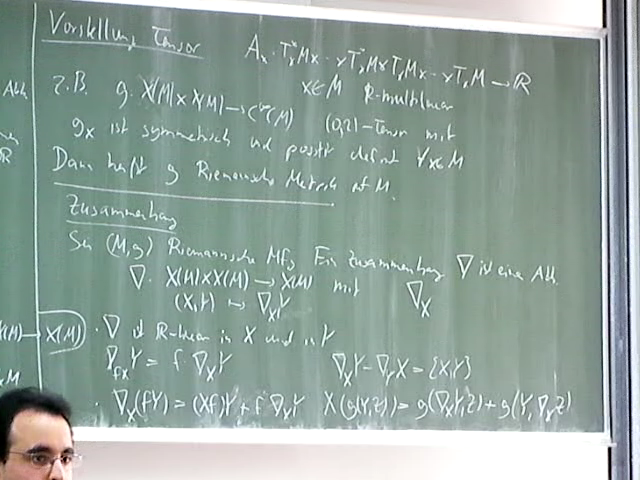 Vorstellung Tensor
A_x : T_x^*M × ... × T_x^*M × T_xM × ... × T_xM → ℝ
x∈M ℝ-multilinear
Abb.
z.B. g: X(M) × X(M) → C^∞(M) (0,2)-Tensor mit
g_x ist symmetrisch und positiv definit ∀x∈M
Dann heißt g Riemannsche Metrik auf M.
Zusammenhang
Sei (M,g) Riemannsche Mfg. Ein Zusammenhang ∇ ist eine Abb.
∇: X(M)×X(M) → X(M) mit
(X,Y) ↦ ∇_X Y
∇_X
X(M) → X(M)
· ∇ ist ℝ-linear in X und in Y
∇_{fX} Y = f·∇_X Y
∇_X Y - ∇_Y X = [X,Y]
· ∇_X(fY) = (Xf)Y + f ∇_X Y
X(g(Y,Z)) = g(∇_X Y, Z) + g(Y, ∇_X Z)